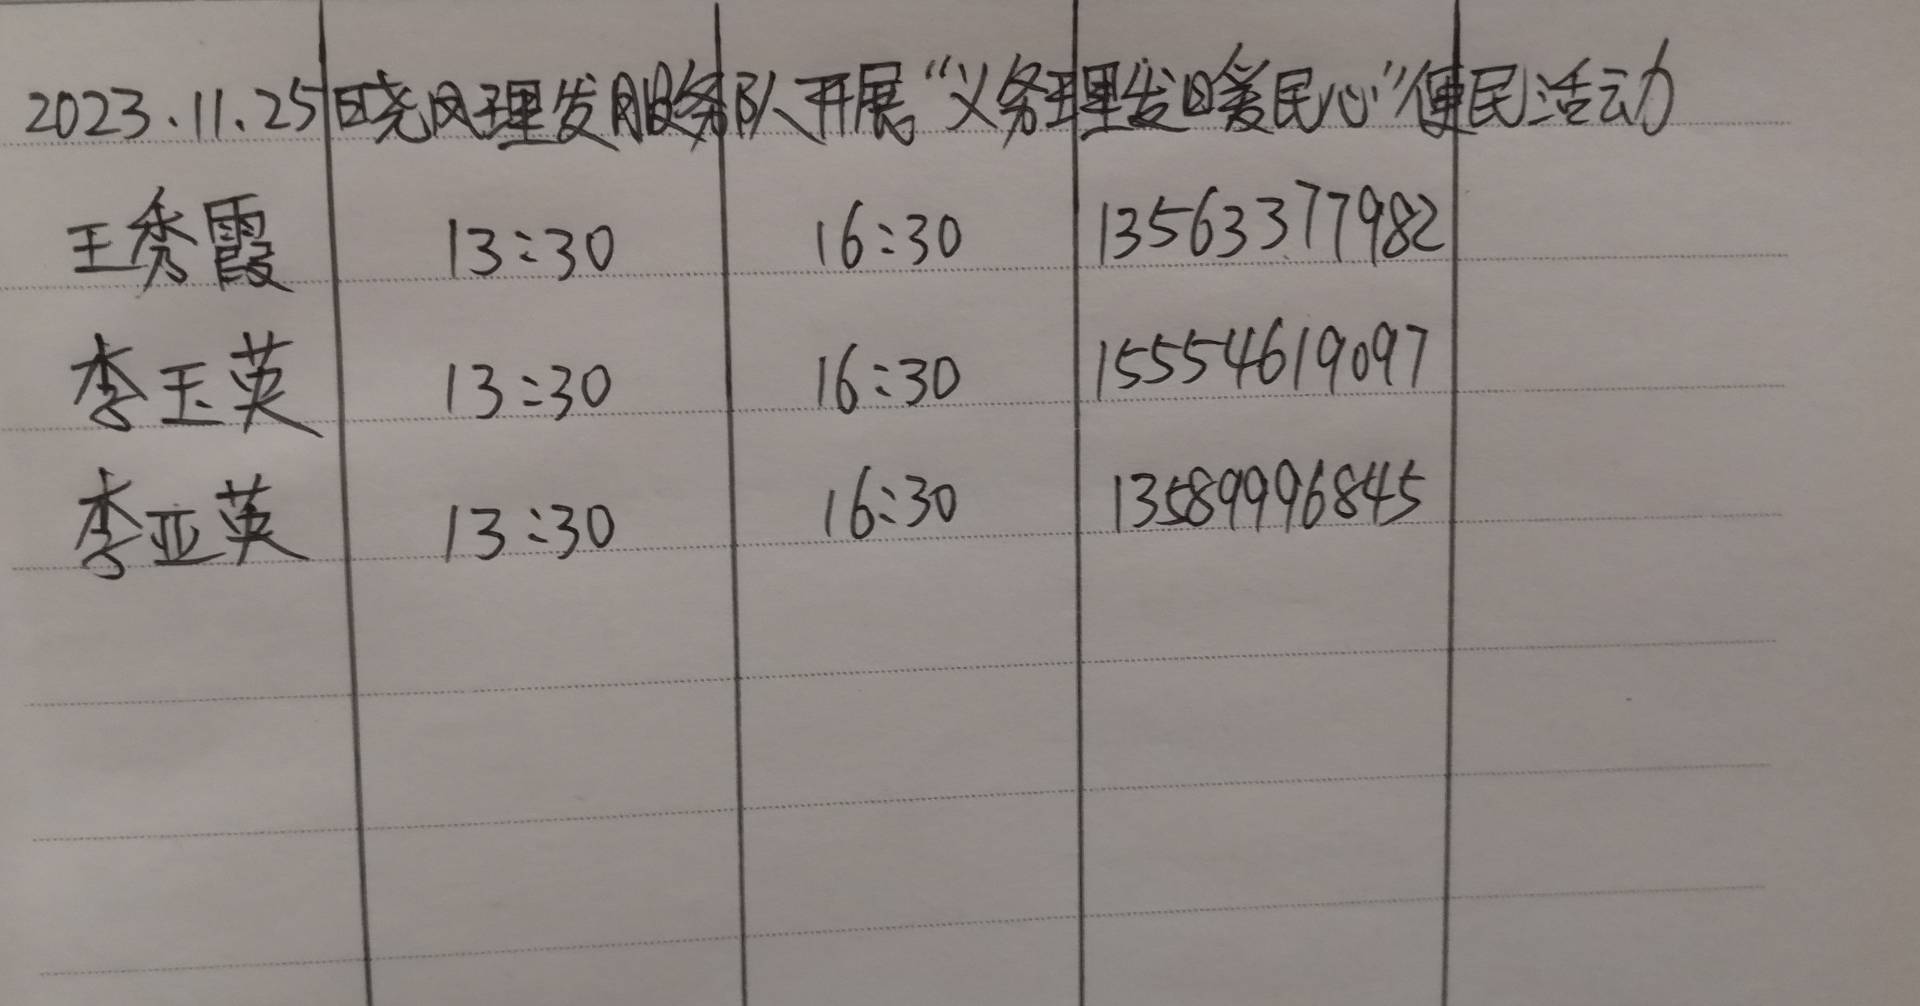 2023.11.25晓风理发服务队开展“义务理发暖民心”便民活动
王秀霞 13:30 16:30 13563377982
李玉英 13:30 16:30 15554619097
李亚英 13:30 16:30 13589996845